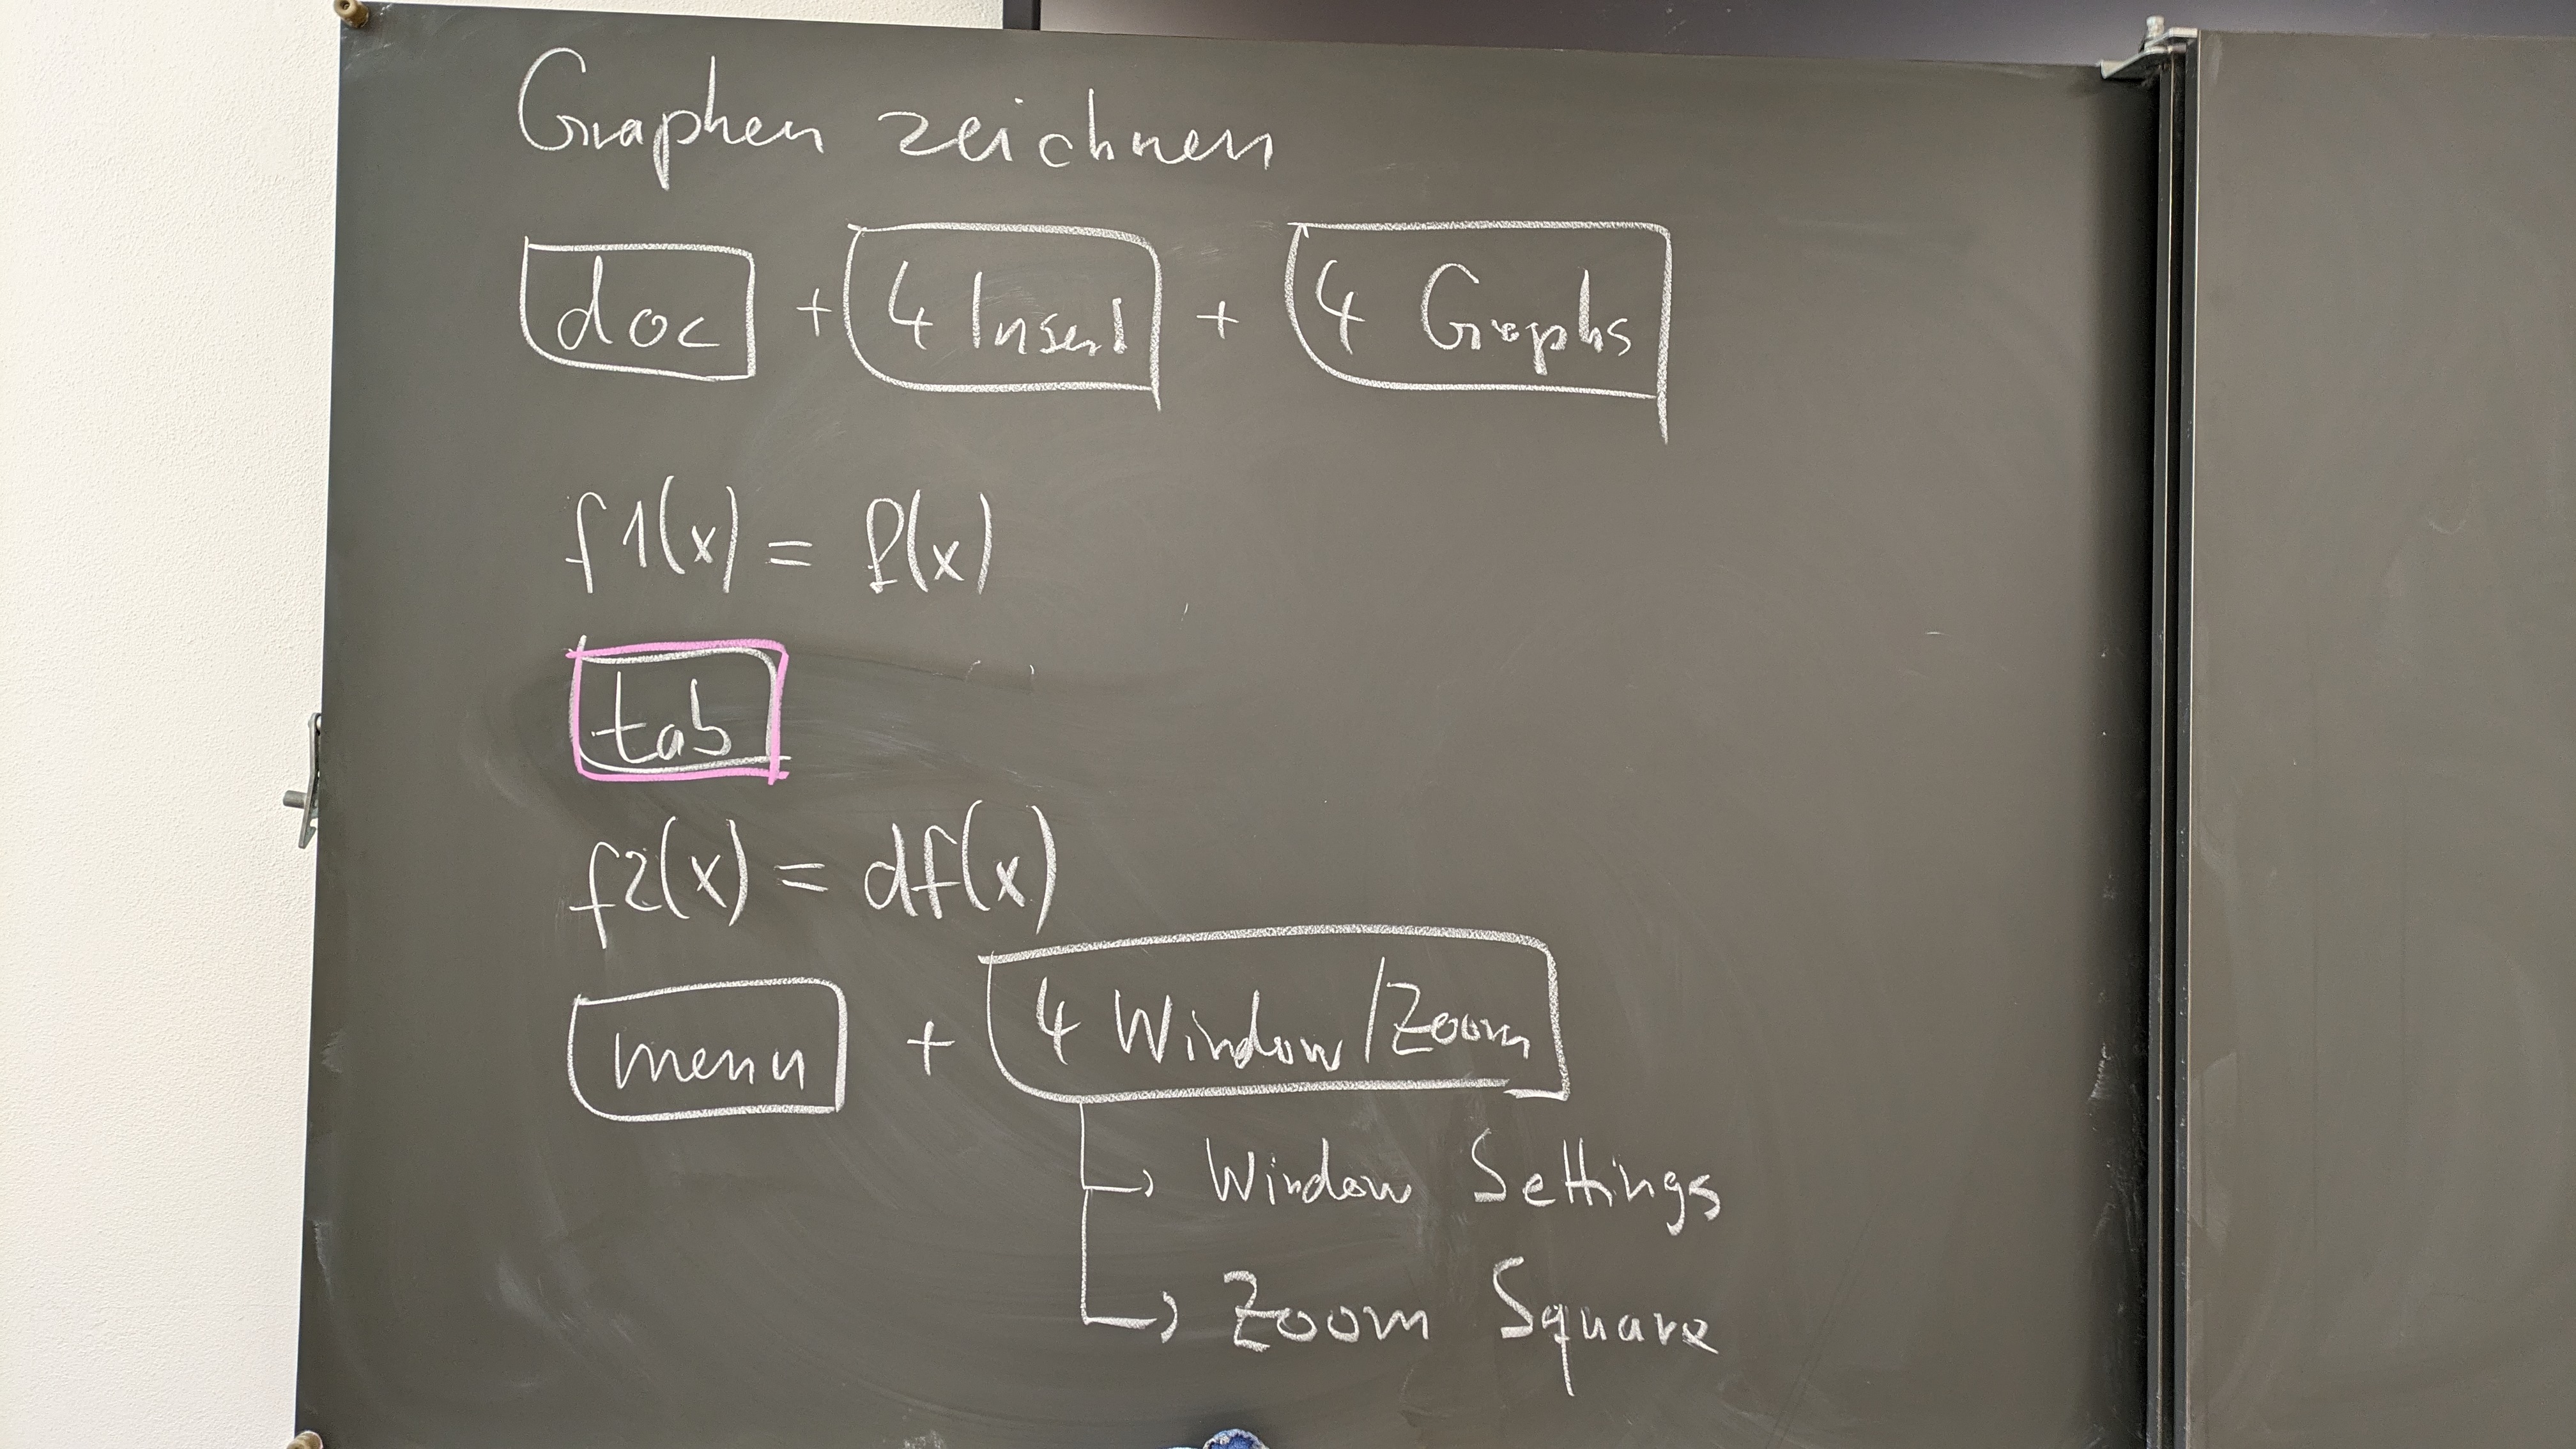 Graphen zeichnen
doc + 4 Insert + 4 Graphs
f1(x) = f(x)
tab
f2(x) = df(x)
menu + 4 Window/Zoom
Window Settings
Zoom Square